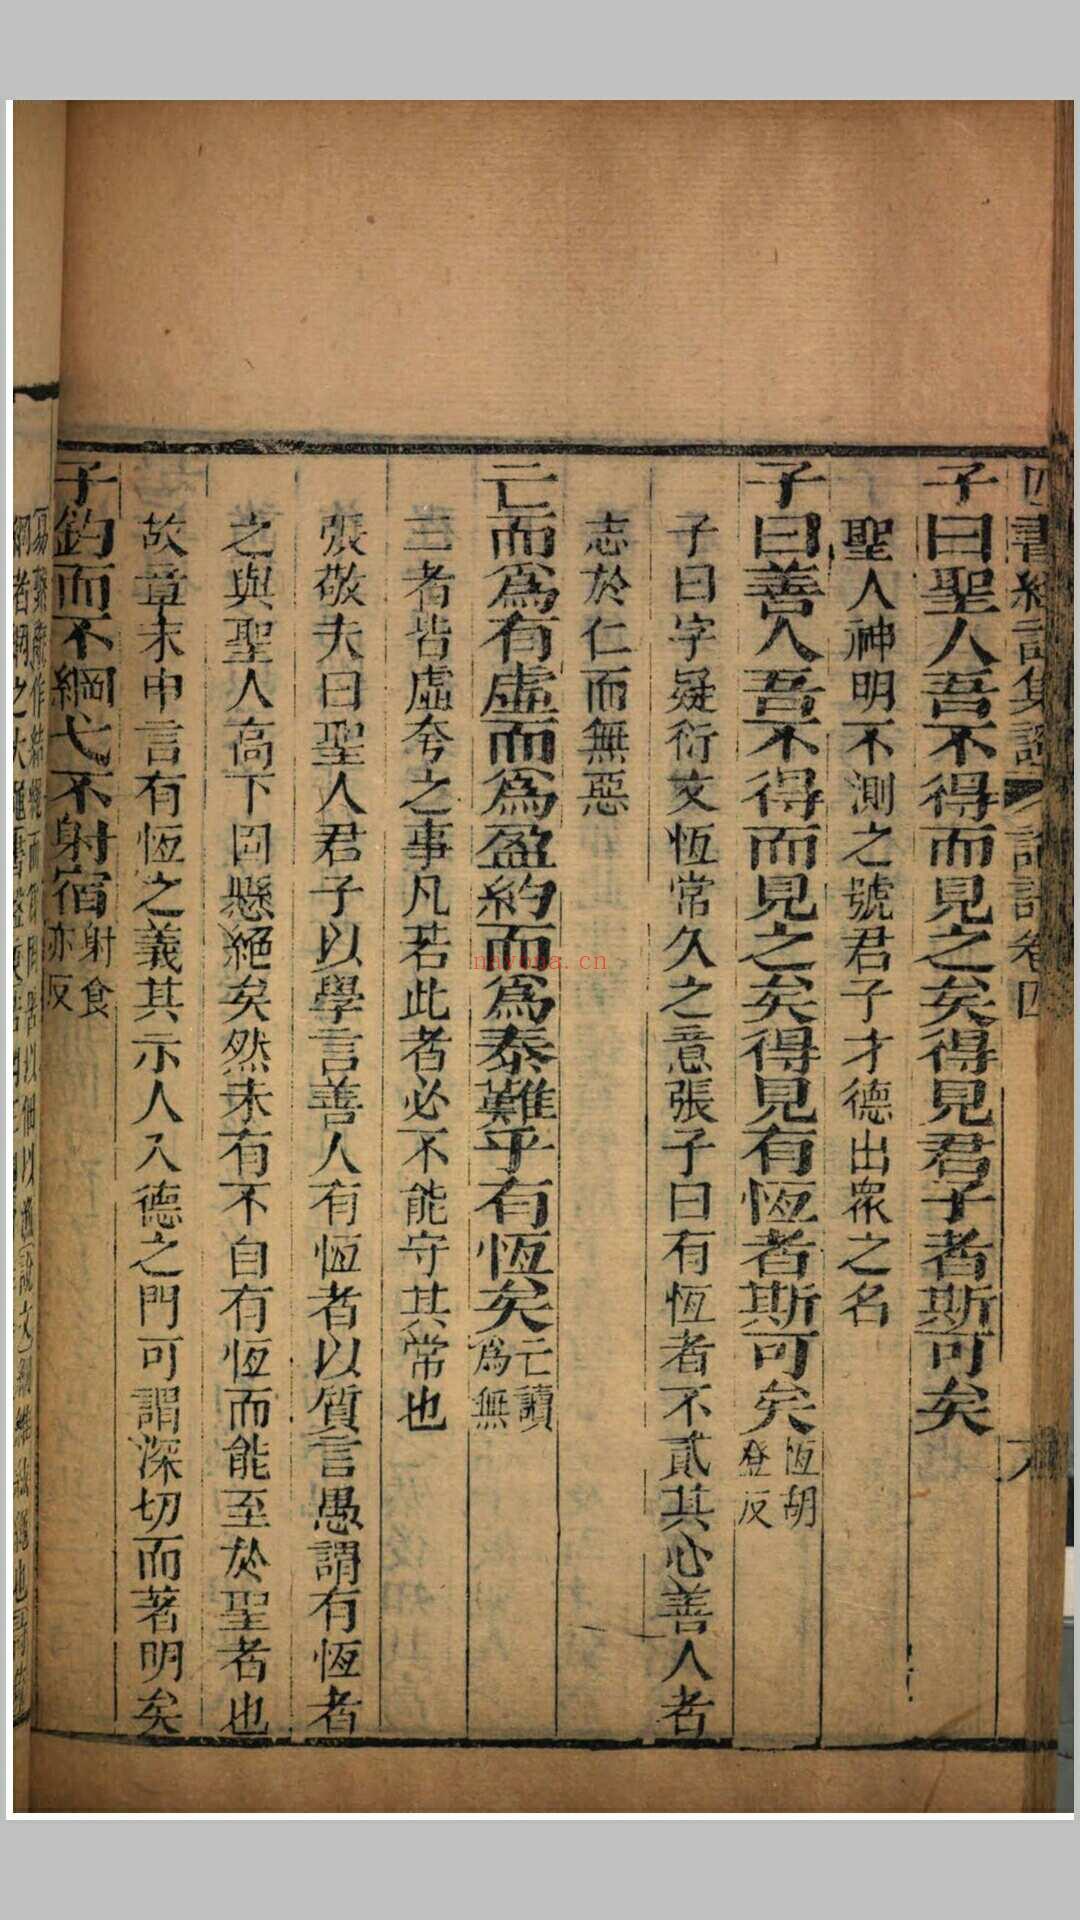 子曰聖人吾不得而見之矣得見君子者斯可矣
聖人神明不測之號君子才德出衆之名
子曰善人吾不得而見之矣得見有恆者斯可矣恆胡登反
子曰字疑衍文恆常久之意張子曰有恆者不貳其心善人者
志於仁而無惡
亡而爲有虛而爲盈約而爲泰難乎有恆矣亡讀爲無
三者皆虛夸之事凡若此者必不能守其常也
張敬夫曰聖人君子以學言善人有恆者以質言愚謂有恆者
之與聖人高下固懸絕矣然未有不自有恆而能至於聖者也
故章末申言有恆之義其示人入德之門可謂深切而著明矣
子釣而不綱弋不射宿射食亦反
nayona.cn